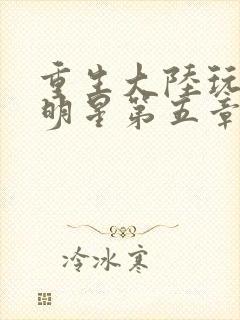 重生大陸玩
明星第五章
冷冰寒